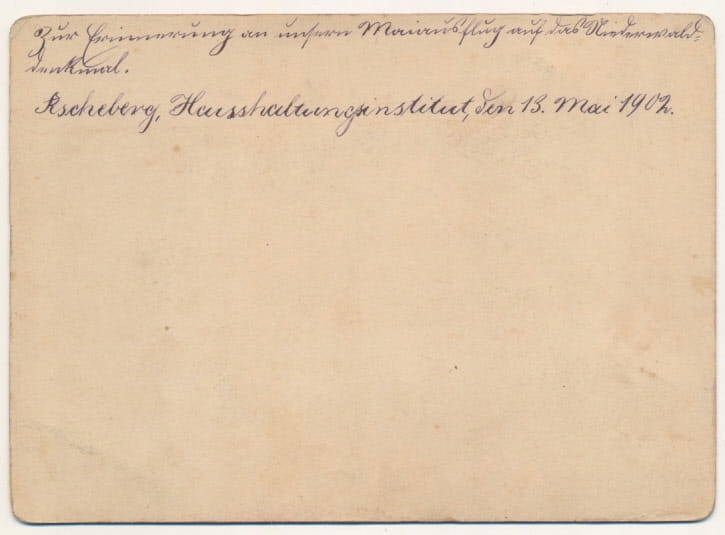 Zur Erinnerung an unsern Maiausflug auf das Niederwald=
denkmal.
Ascheberg, Hausshaltungsinstitut, den 13. Mai 1902.